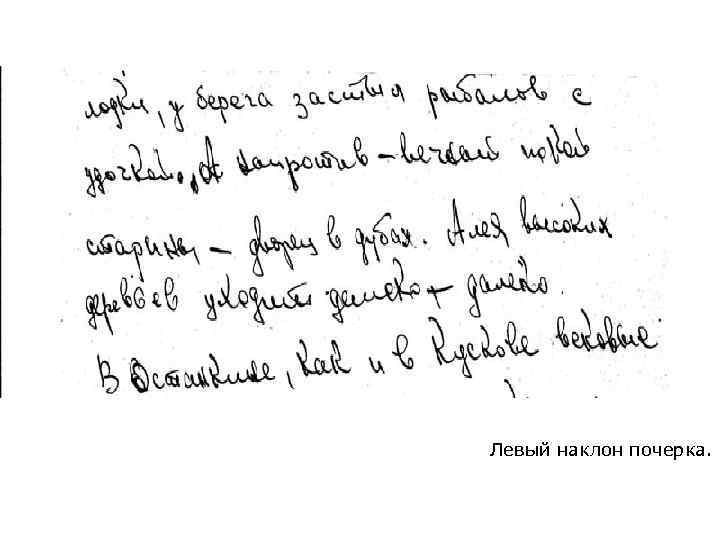 лодки, у берега застыл рыболов с
удочкой. А напротив – вечный покой
старины – дворец в дубах. Алея высоких
деревьев уходит далеко – далеко.
В Останкине, как и в Кускове вековые
Левый наклон почерка.